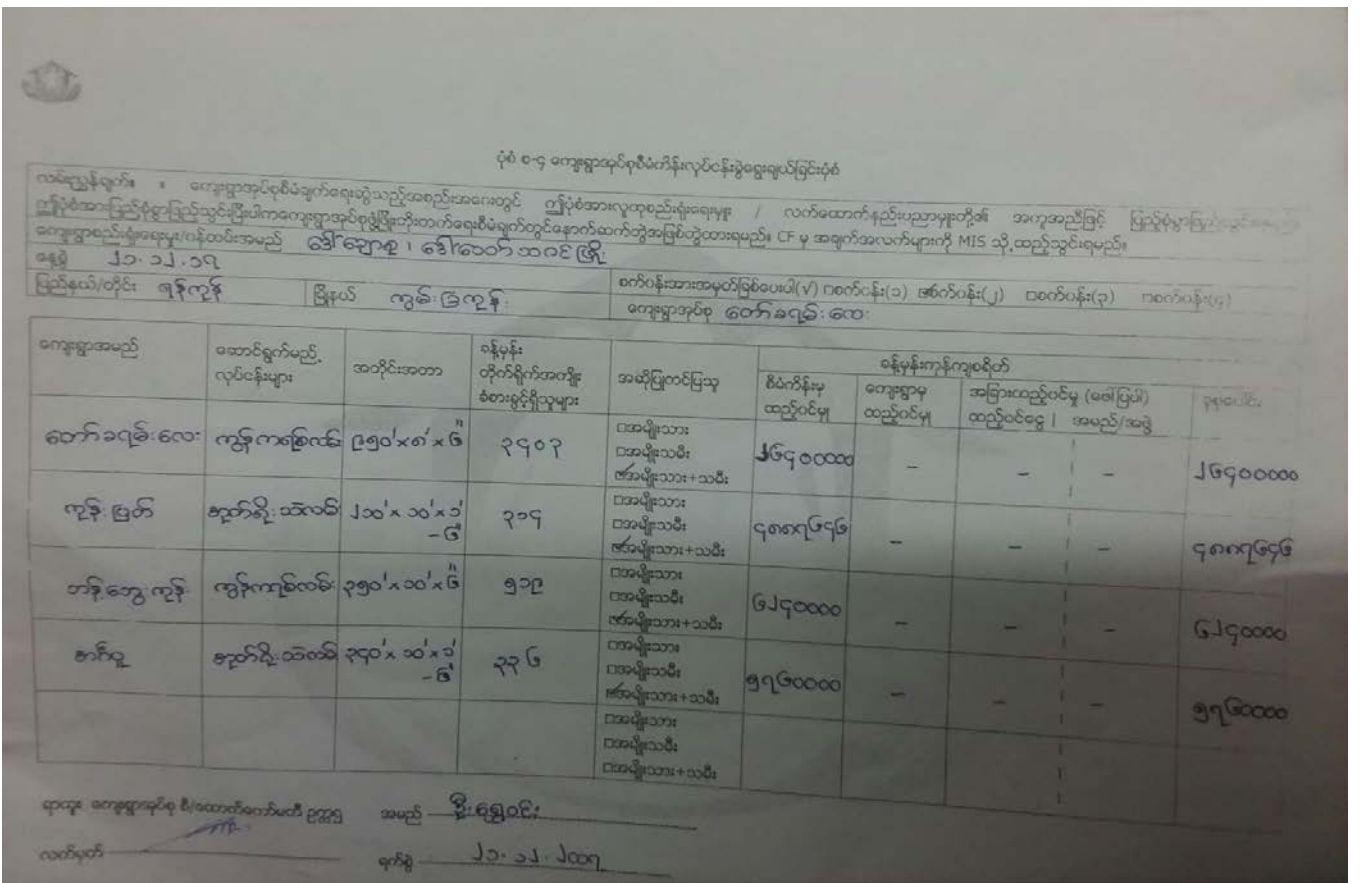 ပုံစံ စ-၄ ကျေးရွာအုပ်စုစီမံကိန်းလုပ်ငန်းခွဲရွေးချယ်ခြင်းပုံစံ
လမ်းညွှန်ချက်။ ။ ကျေးရွာအုပ်စုစီမံချက်ရေးဆွဲသည့်အစည်းအဝေးတွင် ဤပုံစံအားလူထုစည်းရုံးရေးမှူး / လက်ထောက်နည်းပညာမှူးတို့၏ အကူအညီဖြင့် ပြည့်စုံစွာဖြည့်သွင်းရမည်။
ဤပုံစံအားပြည့်စုံစွာဖြည့်သွင်းပြီးပါကကျေးရွာအုပ်စုဖွံ့ဖြိုးတိုးတက်ရေးစီမံချက်တွင်နောက်ဆက်တွဲအဖြစ်တွဲထားရမည်။ CF မှ အချက်အလက်များကို MIS သို့ ထည့်သွင်းရမည်။
ကျေးရွာစည်းရုံးရေးမှူး/ဝန်ထမ်းအမည်
နေ့စွဲ ၂၁.၁၂.၁၇
ပြည်နယ်/တိုင်း ရန်ကုန် မြို့နယ် ကွမ်းခြံကုန်း စက်ဝန်းအားအမှတ်ခြစ်ပေးပါ(√) □စက်ဝန်း(၁) ☑စက်ဝန်း(၂) □စက်ဝန်း(၃) □စက်ဝန်း(၄)
ကျေးရွာအုပ်စု တော်ခရမ်းလေး
ကျေးရွာအမည် ဆောင်ရွက်မည့်လုပ်ငန်းများ အတိုင်းအတာ ခန့်မှန်းတိုက်ရိုက်အကျိုးခံစားခွင့်ရှိသူများ အဆိုပြုတင်ပြသူ ခန့်မှန်းကုန်ကျစရိတ်
စီမံကိန်းမှထည့်ဝင်မှု ကျေးရွာမှထည့်ဝင်မှု အခြားထည့်ဝင်မှု (ဖော်ပြပါ) ထည့်ဝင်ငွေ | အမည်/အဖွဲ့ စုစုပေါင်း
တော်ခရမ်းလေး ကွန်ကရစ်လမ်း ၉၅၀'x၈'x၆" ၃၄၀၃ □အမျိုးသား □အမျိုးသမီး ☑အမျိုးသား+သမီး ၂၆၄၀၀၀၀၀ - - - ၂၆၄၀၀၀၀၀
ကုန်းပြတ် အုတ်ရိုးသဲလမ်း ၂၁၀'x ၁၀'x၁'-၆" ၃၁၄ □အမျိုးသား □အမျိုးသမီး ☑အမျိုးသား+သမီး ၄၈၈၇၆၄၆ - - - ၄၈၈၇၆၄၆
ကွန်ကရစ်လမ်း ၃၅၀'x၁၀'x၆" ၅၁၉ □အမျိုးသား □အမျိုးသမီး ☑အမျိုးသား+သမီး ၆၂၄၀၀၀၀ - - - ၆၂၄၀၀၀၀
အုတ်ရိုးသဲလမ်း ၃၄၀'x ၁၀'x၁'-၆" ၃၃၆ □အမျိုးသား □အမျိုးသမီး ☑အမျိုးသား+သမီး ၅၇၆၀၀၀၀ - - - ၅၇၆၀၀၀၀
□အမျိုးသား □အမျိုးသမီး □အမျိုးသား+သမီး
ရာထူး ကျေးရွာအုပ်စု စီ/ထောက်ကော်မတီ ဥက္ကဋ္ဌ အမည် ဦးရွှေဝင်း
လက်မှတ် ရက်စွဲ ၂၁.၁၂.၂၀၁၇